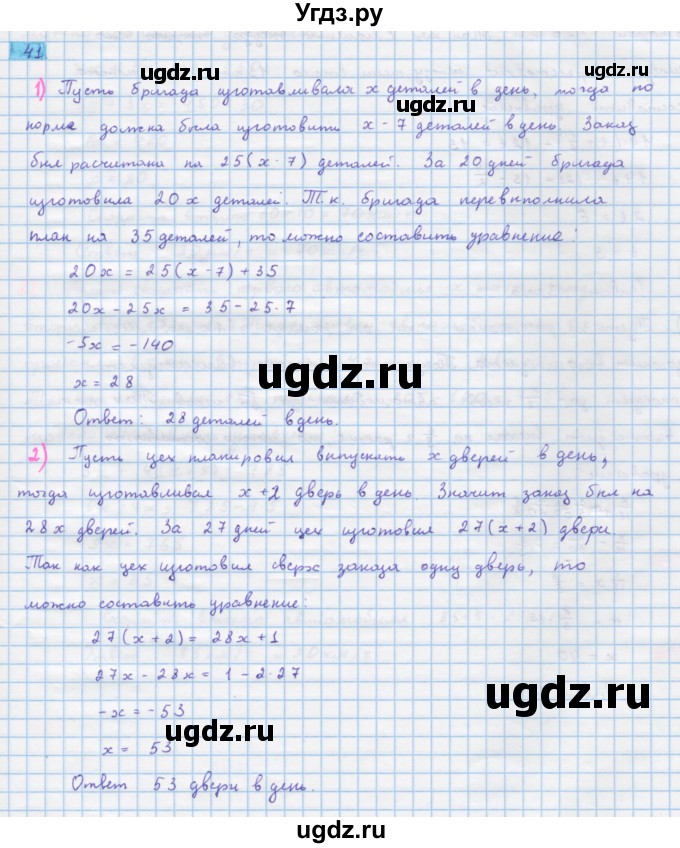 Угдз.ру
41
1) Пусть бригада изготавливала x деталей в день, тогда по
норме должна была изготовить x - 7 деталей в день. Заказ
был расчитана на 25(x-7) деталей. За 20 дней бригада
изготовила 20x деталей. Т.к. бригада перевыполнила
план на 35 деталей, то можно составить уравнение:
20x = 25(x-7)+35
20x - 25x = 35 - 25·7
-5x = -140
x = 28
Ответ: 28 деталей в день.
2) Пусть цех планировал выпускать x дверей в день,
тогда изготавливал x+2 дверь в день. Значит заказ был на
28x дверей. За 27 дней цех изготовил 27(x+2) двери.
Так как цех изготовил сверх заказа одну дверь, то
можно составить уравнение:
27(x+2) = 28x+1
27x - 28x = 1 - 2·27
-x = -53
x = 53
Ответ 53 двери в день.
ugdz.ru
ugdz.ru
ugdz.ru
ugdz.ru
ugdz.ru
ugdz.ru
ugdz.ru
ugdz.ru
ugdz.ru